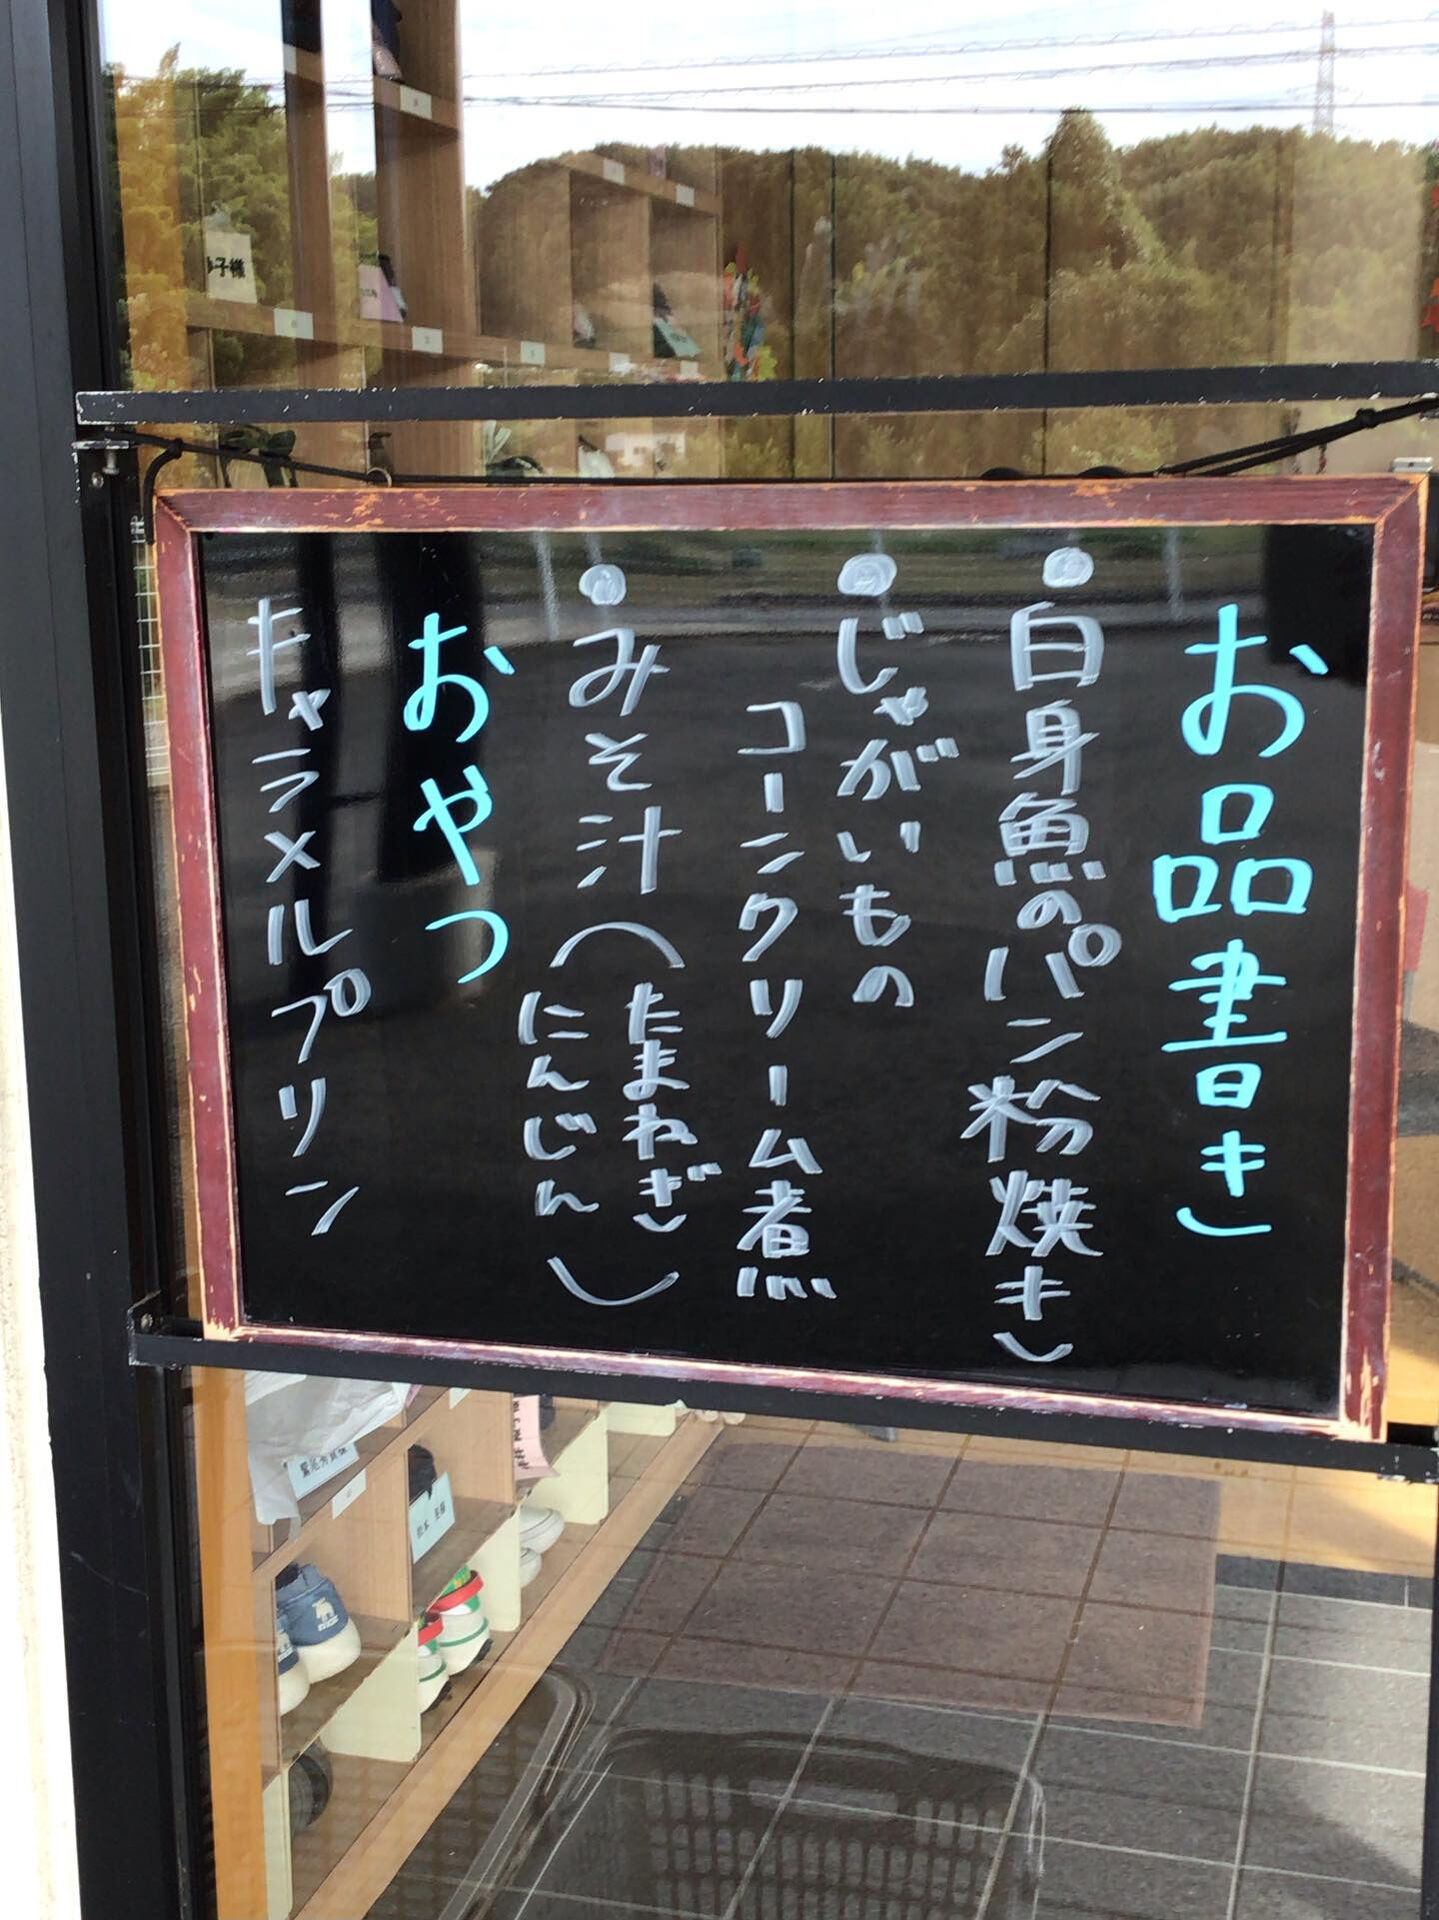 お品書き
●白身魚のパン粉焼き
●じゃがいもの
コーンクリーム煮
●みそ汁(たまねぎ
にんじん)
おやつ
キャラメルプリン
子様